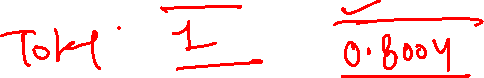 Total: 1 0.8004